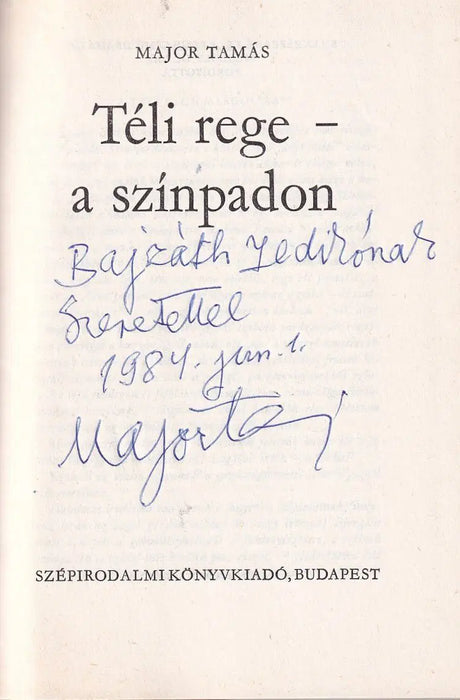 MAJOR TAMÁS
Téli rege –
a színpadon
Bajzáth
Szeretettel
1984. jun. 1.
Major Ta
SZÉPIRODALMI KÖNYVKIADÓ, BUDAPEST